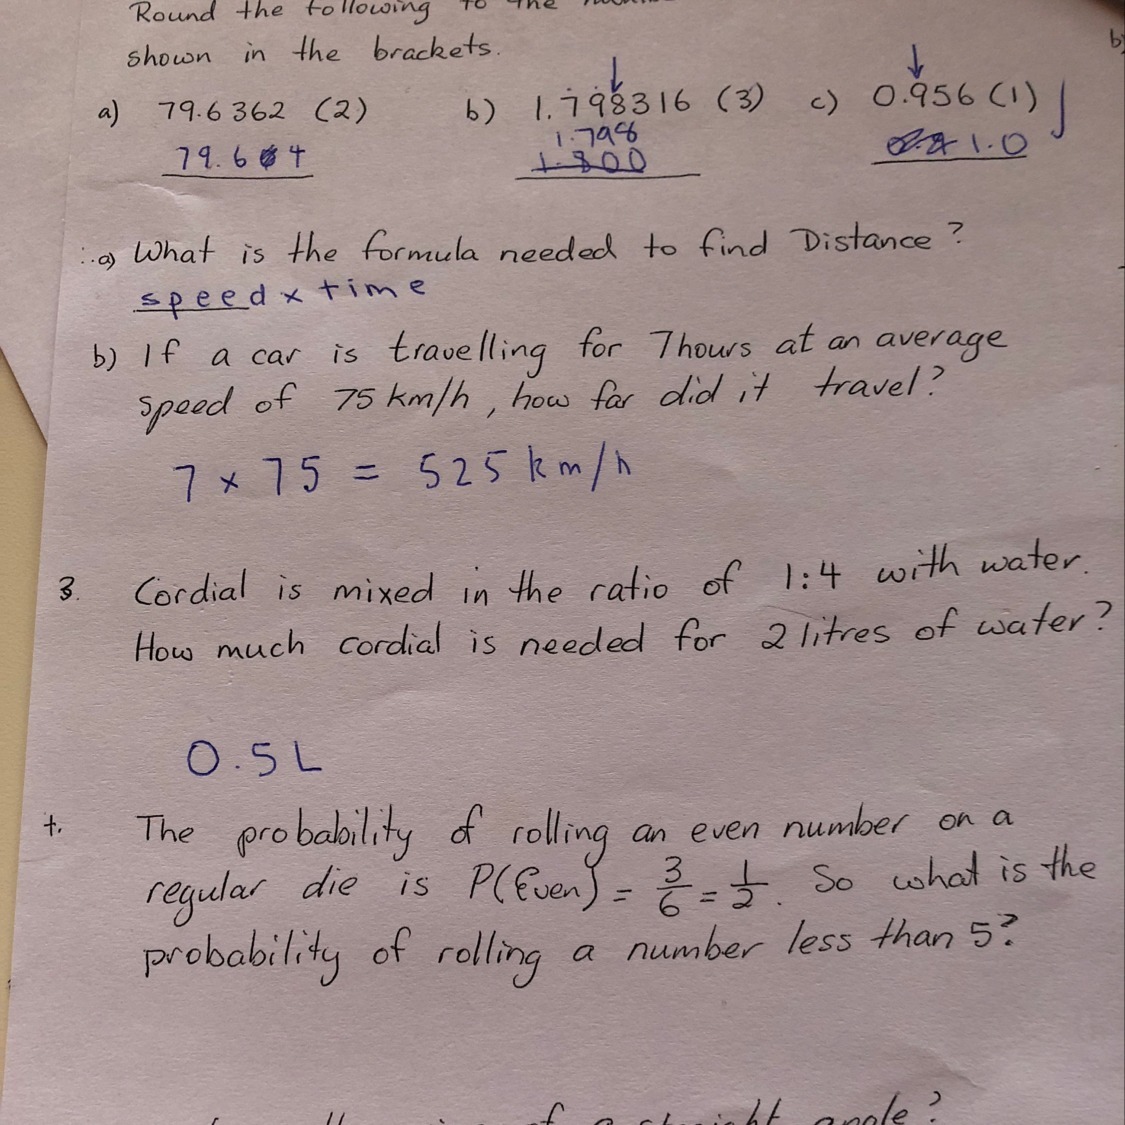 Round the following to the
shown in the brackets.
a) 79.6362 (2) b) 1.798316 (3) c) 0.956 (1)
79.64 1.798 1.0
1.800
a) What is the formula needed to find Distance?
speed x time
b) If a car is travelling for 7hours at an average
speed of 75 km/h, how far did it travel?
7 x 75 = 525 km/h
3. Cordial is mixed in the ratio of 1:4 with water.
How much cordial is needed for 2 litres of water?
0.5L
The probability of rolling an even number on a
regular die is P(Even) = 3/6 = 1/2. So what is the
probability of rolling a number less than 5?
of a straight angle?